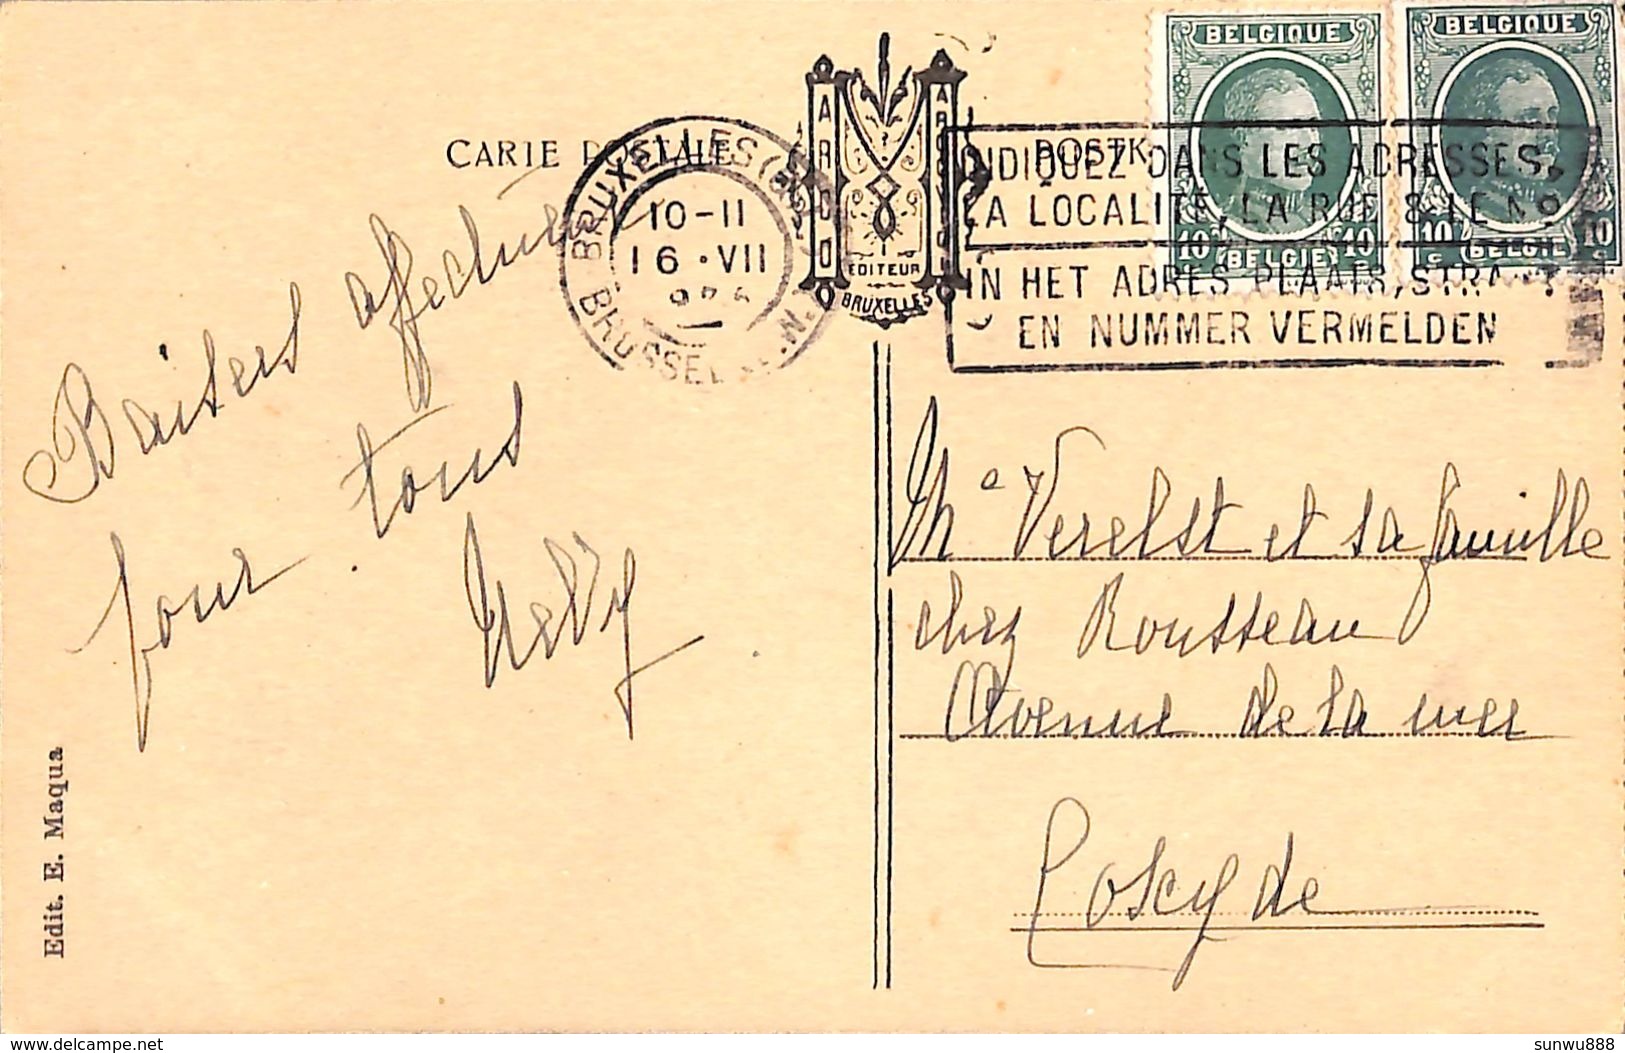 BELGIQUE
BELGIQUE
CARTE POSTALE
POSTK
BRUXELLES
10-11
16 · VII
BRUSSEL
ARDO
EDITEUR
BRUXELLES
INDIQUEZ DANS LES ADRESSES,
LA LOCALITÉ, LA RUE & LE No
IN HET ADRES PLAATS, STRAAT
EN NUMMER VERMELDEN
10 10
BELGIE
10 10
BELGIE
Baisers affectueux
pour tous
Nelly
Me Verelst et sa famille
chez Rousseau
Avenue de la mer
Coscyde
Edit. E. Maqua
www.delcampe.net
sunwu888